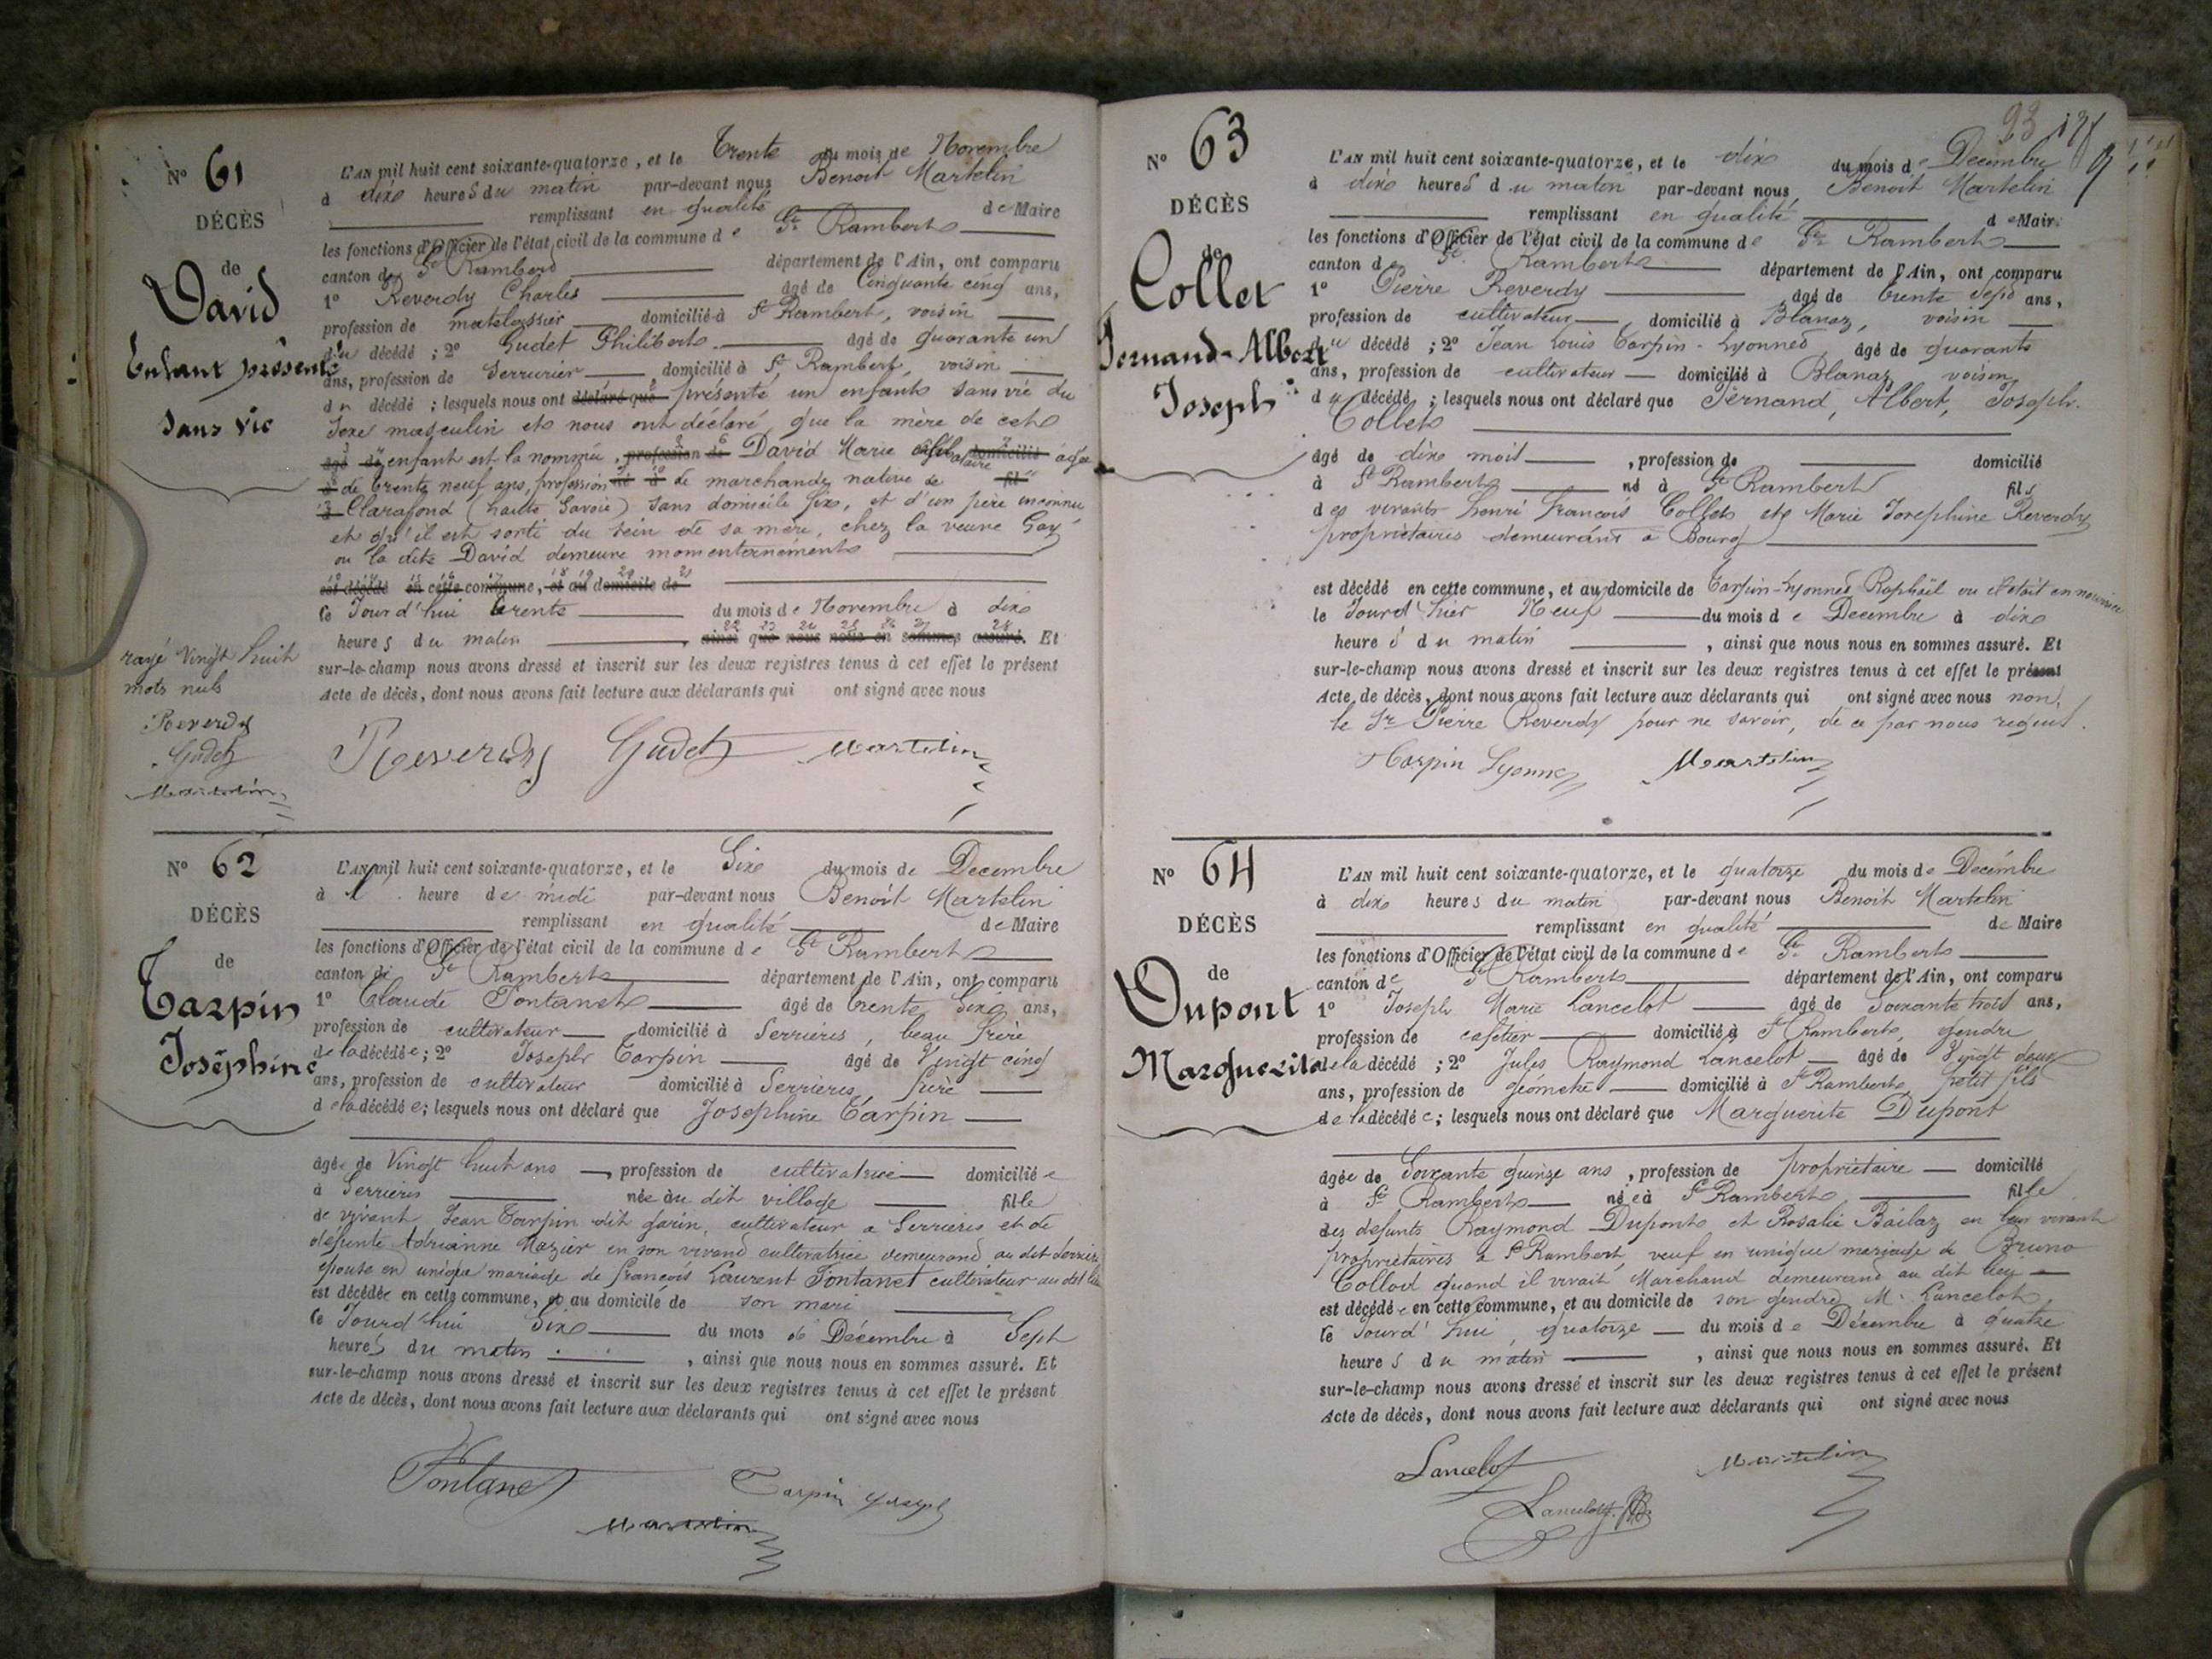 N° 61
DÉCÈS
de
David
Enfant présenté
sans vie
L'AN mil huit cent soixante-quatorze, et le Trente du mois de Novembre
à dix heures du matin par-devant nous Benoit Martelin
remplissant en qualité de Maire
les fonctions d'Officier de l'état civil de la commune de St Rambert
canton de St Rambert département de l'Ain, ont comparu
1° Reverdy Charles âgé de Cinquante cinq ans,
profession de matelassier domicilié à St Rambert, voisin
du décédé ; 2° Gudet Philibert âgé de quarante un
ans, profession de Serrurier domicilié à St Rambert, voisin
du décédé ; lesquels nous ont déclaré que présenté un enfant sans vie du
Sexe masculin et nous ont déclaré que la mère de cet
âgé de enfant est la nommée, profession de David Marie célibataire domicilié agée
à de trente neuf ans, profession né à de marchande native de fil
Clarafond (haute Savoie) sans domicile fixe, et d'un père inconnu
et qu'il est sorti du sein de sa mère, chez la veuve Gay
ou la dite David demeure momentanément
est décédé en cette commune, et au domicile de
le Jourd'hui trente du mois de Novembre à dix
heures du matin, ainsi que nous nous en sommes assuré. Et
sur-le-champ nous avons dressé et inscrit sur les deux registres tenus à cet effet le présent
Acte de décès, dont nous avons fait lecture aux déclarants qui ont signé avec nous
rayé Vingt huit
mots nuls
Reverdy
Gudet
Martelin
Reverdy Gudet Martelin
N° 62
DÉCÈS
de
Tarpin
Joséphine
L'AN mil huit cent soixante-quatorze, et le Six du mois de Décembre
à 1 heure de midi par-devant nous Benoit Martelin
remplissant en qualité de Maire
les fonctions d'Officier de l'état civil de la commune de St Rambert
canton de St Rambert département de l'Ain, ont comparu
1° Claude Fontanet âgé de trente Six ans,
profession de cultivateur domicilié à Serrières, beau frère
de la décédée; 2° Joseph Tarpin âgé de Vingt cinq
ans, profession de cultivateur domicilié à Serrières, frère
de la décédée; lesquels nous ont déclaré que Josephine Tarpin
âgée de Vingt huit ans, profession de cultivatrice domiciliée
à Serrières née au dit village fille
de vivant Jean Tarpin dit garin, cultivateur a Serrières et de
défunte Adrianne Mazier en son vivant cultivatrice demeurand au dit Serrières
épouse en unique mariage de françois Laurent Fontanet cultivateur au dit lieu
est décédée en cette commune, et au domicile de son mari
le Jourd'hui Six du mois de Décembre à Sept
heures du matin, ainsi que nous nous en sommes assuré. Et
sur-le-champ nous avons dressé et inscrit sur les deux registres tenus à cet effet le présent
Acte de décès, dont nous avons fait lecture aux déclarants qui ont signé avec nous
Fontanet Tarpin Joseph
Martelin
93
N° 63
DÉCÈS
de
Collet
Fernand-Albert
Joseph
L'AN mil huit cent soixante-quatorze, et le dix du mois de Décembre
à dix heures du matin par-devant nous Benoit Martelin
remplissant en qualité de Maire
les fonctions d'Officier de l'état civil de la commune de St Rambert
canton de St Rambert département de l'Ain, ont comparu
1° Pierre Reverdy âgé de trente Sept ans,
profession de cultivateur domicilié à Blanaz, voisin
du décédé ; 2° Jean Louis Tarpin-Lyonnet âgé de quarante
ans, profession de cultivateur domicilié à Blanaz voisin
du décédé ; lesquels nous ont déclaré que Fernand, Albert, Joseph
Collet
âgé de dix mois, profession de domicilié
à St Rambert né à St Rambert fils
des vivants henri françois Collet et Marie Josephine Reverdy
propriétaires demeurant a Bourg
est décédé en cette commune, et au domicile de Tarpin-Lyonnet Raphaël ou il était en nourrice
le Jourd'hier Neuf du mois de Décembre à dix
heures du matin, ainsi que nous nous en sommes assuré. Et
sur-le-champ nous avons dressé et inscrit sur les deux registres tenus à cet effet le présent
Acte de décès, dont nous avons fait lecture aux déclarants qui ont signé avec nous non,
le Sr Pierre Reverdy pour ne savoir, de ce par nous requis.
Tarpin Lyonnet Martelin
N° 64
DÉCÈS
de
Dupont
Marguerite
L'AN mil huit cent soixante-quatorze, et le quatorze du mois de Décembre
à dix heures du matin par-devant nous Benoit Martelin
remplissant en qualité de Maire
les fonctions d'Officier de l'état civil de la commune de St Rambert
canton de St Rambert département de l'Ain, ont comparu
1° Joseph Marie Lancelot âgé de Soixante trois ans,
profession de cafetier domicilié à St Rambert, gendre
de la décédé ; 2° Jules Raymond Lancelot âgé de Vingt deux
ans, profession de géomètre domicilié à St Rambert, petit fils
de la décédée; lesquels nous ont déclaré que Marguerite Dupont
âgée de Soixante quinze ans, profession de propriétaire domicilié
à St Rambert née à St Rambert fille
des défunts Raymond Dupont et Rosalie Bailaz en leur vivant
propriétaires a St Rambert, veuf en unique mariage de Bruno
Collod quand il vivait Marchand demeurand au dit lieu
est décédée en cette commune, et au domicile de son gendre Mr Lancelot
le Jourd'hui, quatorze du mois de Décembre à quatre
heures du matin, ainsi que nous nous en sommes assuré. Et
sur-le-champ nous avons dressé et inscrit sur les deux registres tenus à cet effet le présent
Acte de décès, dont nous avons fait lecture aux déclarants qui ont signé avec nous
Lancelot Martelin
Lancelot